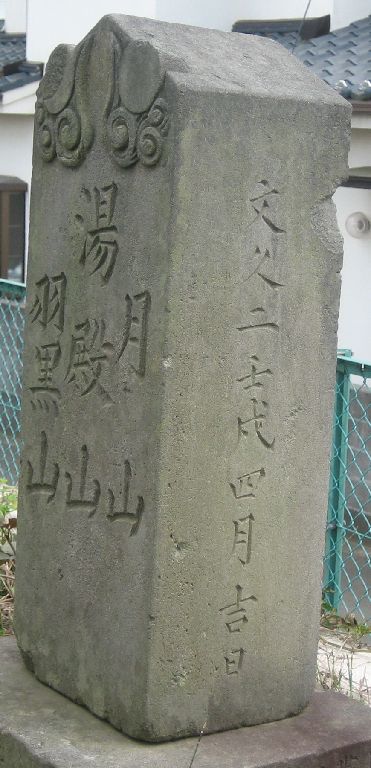 月山
湯殿山
羽黒山
文久二壬戌四月吉日